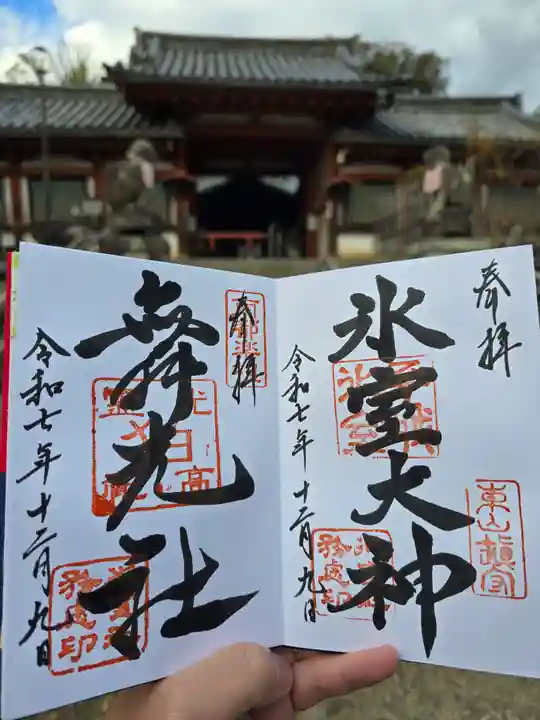 奉拝
氷室大神
東山鎮宮
令和七年十二月九日
奉拝
舞光社
令和七年十二月九日
務処印